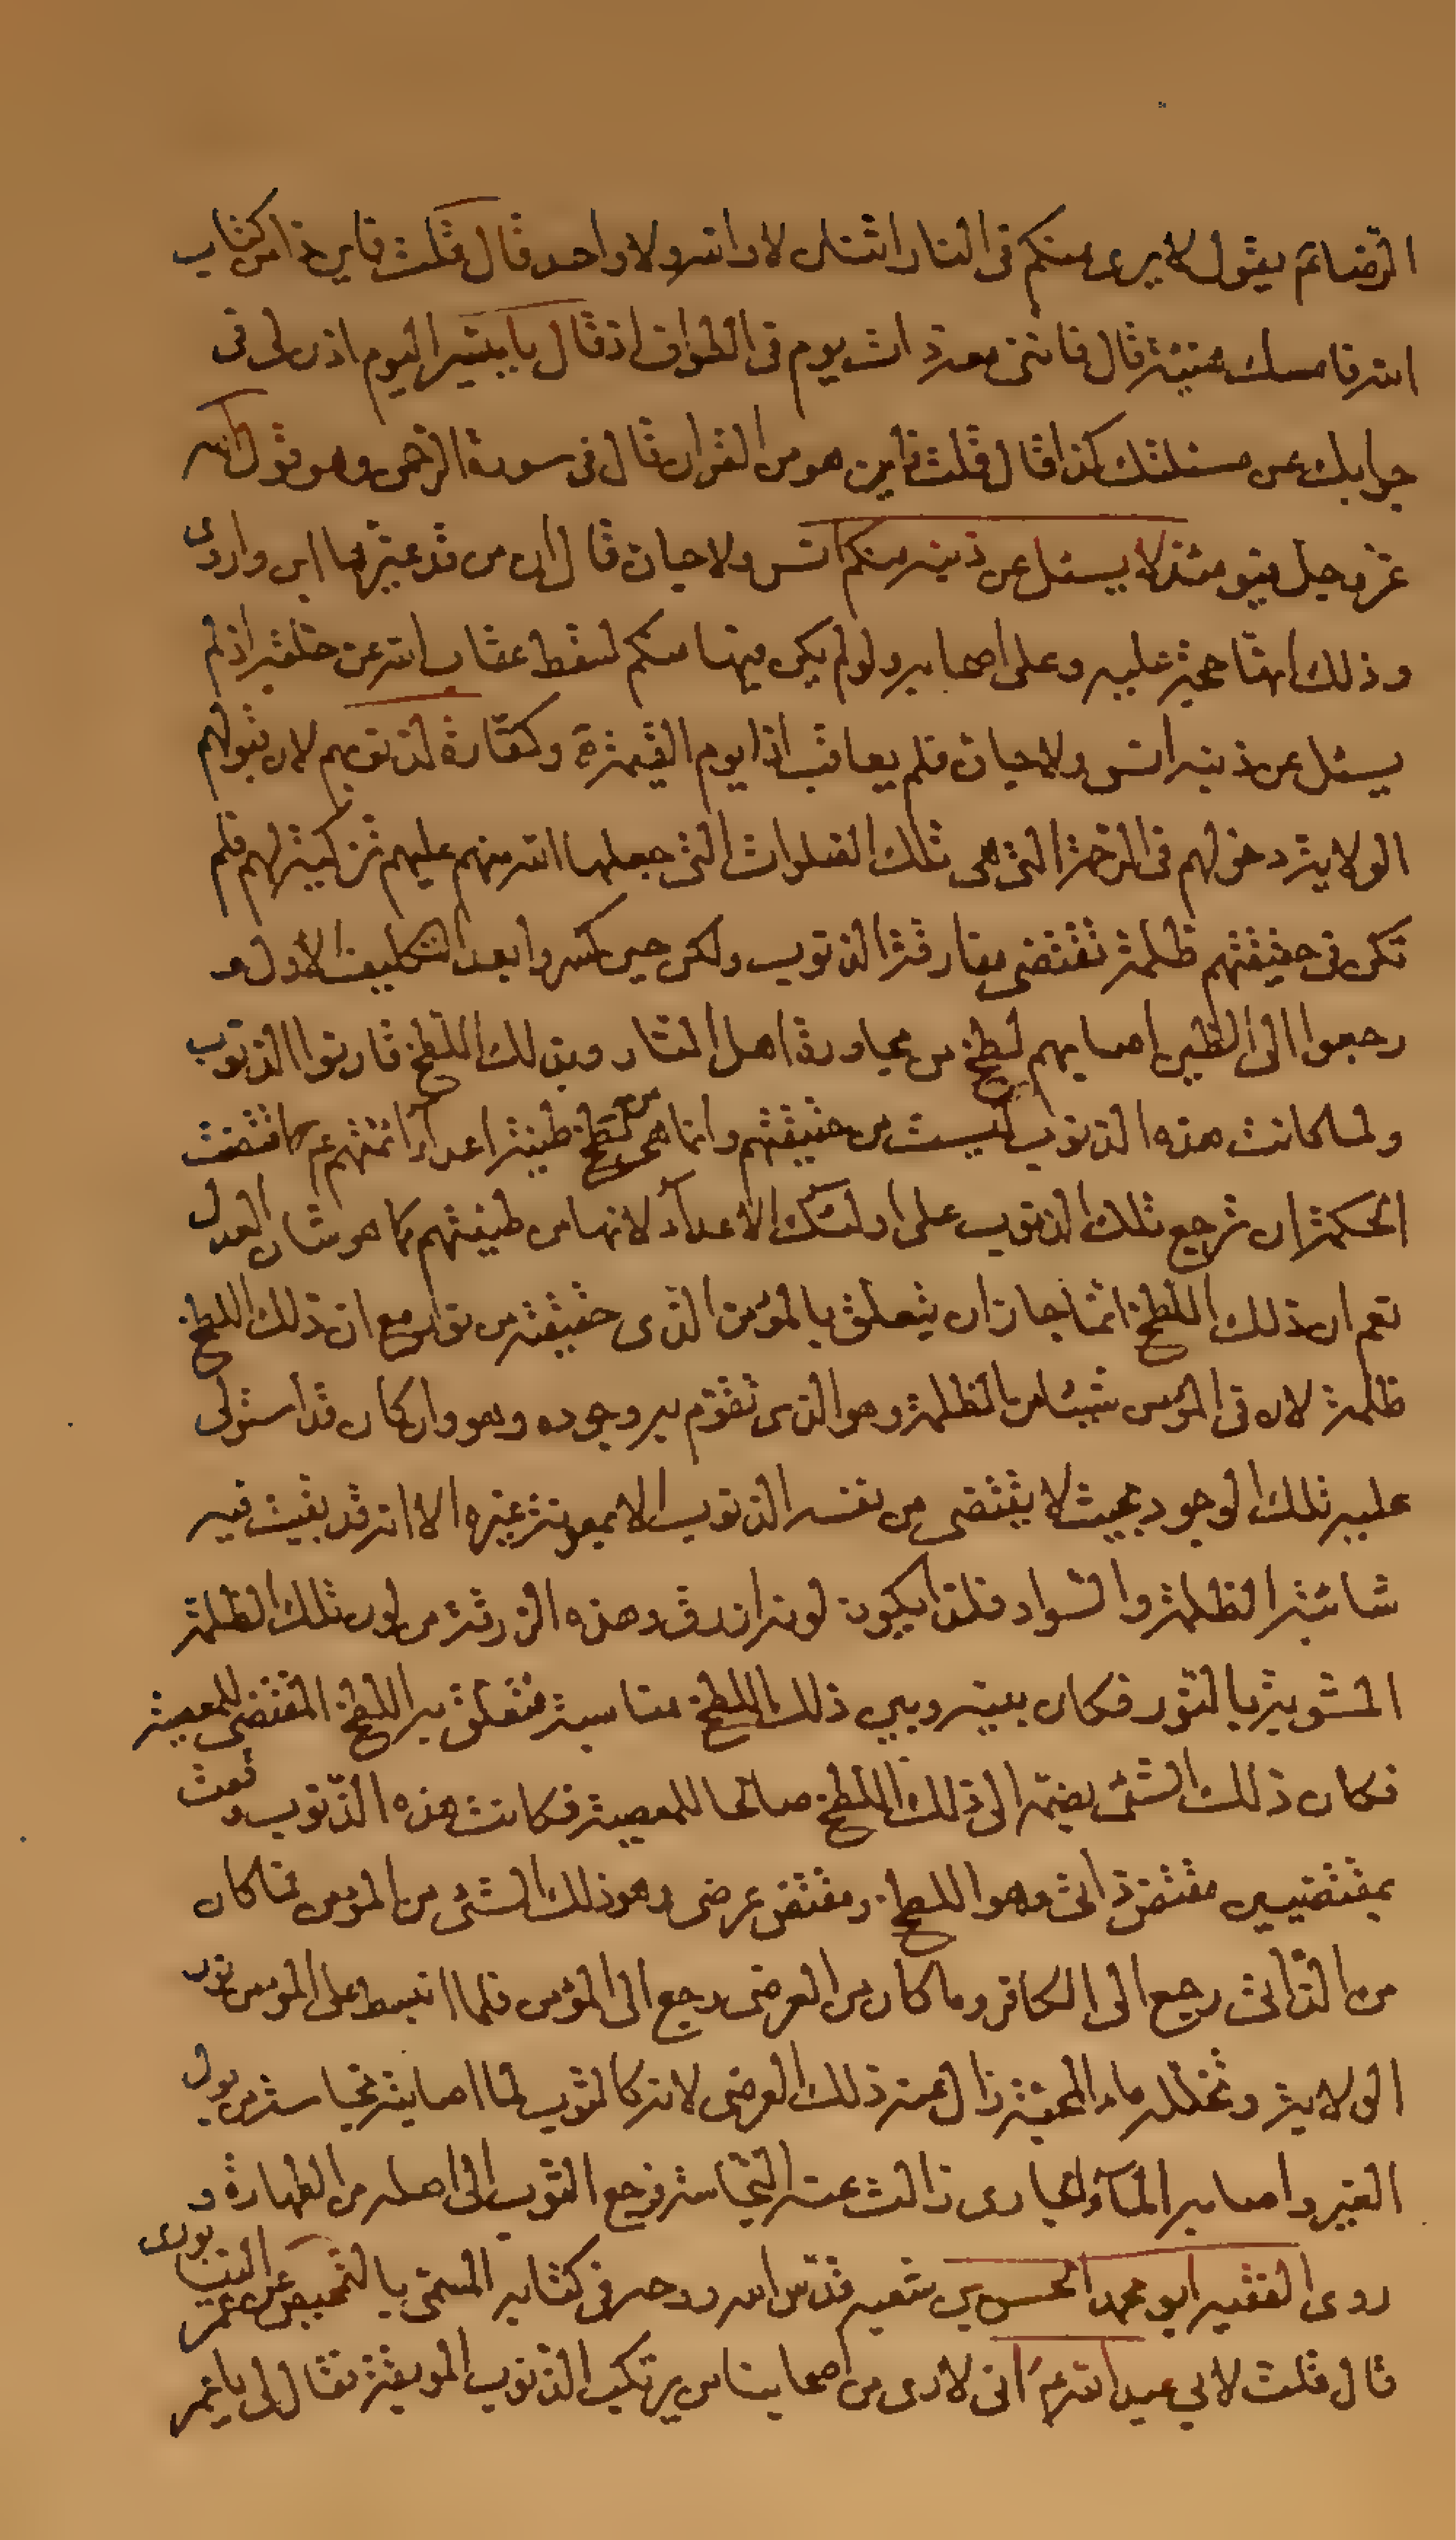 الرضا ع يقول لا يرى منكم فى النار اثنان لا والله ولا واحد قال قلت فاين ذا من كتاب
الله فامسك هنيئة قال فانى معه ذات يوم فى الطواف اذ قال يا ميسر اليوم اذن لى فى
جوابك عن مسئلتك كذا قال قلت فاين هو من القران قال فى سورة الرحمن وهو قول الله
عز وجل فيومئذ لا يسئل عن ذنبه منكم انس ولا جان قال ان من قد غيرها ابن اروى
وذلك انها حجة عليه وعلى اصحابه ولو لم يكن فيها منكم لسقط عقاب الله عن خلقه اذ لم
يسئل عن ذنبه انس ولا جان فلم يعاقب اذا يوم القيمة وكفارة لذنوبهم لان قبولهم
الولاية دخولهم فى الرحمة التى هى تلك الصلوات التى جعلها الله منهم عليهم تزكية لهم فلم
تكن فى حقيقتهم ظلمة تقتضى مقارفة الذنوب ولكن حين كسروا بعد التكليف الاول و
رجعوا الى الطين اصابهم لطخ من مجاورة اهل النار وبذلك اللطخ قارنوا الذنوب
ولما كانت هذه الذنوب ليست من حقيقتهم وانما هى من لطخ طينة اعداء ائمتهم ع اقتضت
الحكمة ان ترجع تلك الذنوب على اولئك الاعداء لانها من طينتهم كما هو شان العدل
نعم ان ذلك اللطخ انما جاز ان يتعلق بالمؤمن الذى حقيقته من نور مع ان ذلك اللطخ
ظلمة لان فى المؤمن شيئا من الظلمة وهو الذى تقوم به وجوده وهو وان كان قد استولى
عليه تلك الوجود بحيث لا يقتضى من نفسه الذنوب الا بمعونة غيره الا انه قد بقيت فيه
شائبة الظلمة والسواد فلذا يكون لونه ازرق وهذه الزرقة من لون تلك الظلمة
المشوبة بالنور فكان بينه وبين ذلك اللطخ مناسبة فتعلق به اللطخ المقتضى للمعصية
فكان ذلك الشئ بضمه الى ذلك اللطخ صالحا للمعصية فكانت هذه الذنوب وقعت
بمقتضيين مقتض ذاتى وهو اللطخ ومقتض عرضى وهو ذلك الشئ من المؤمن فما كان
من الذاتى رجع الى الكافر وما كان من العرضى رجع الى المؤمن فلما انبسط على المؤمن نور
الولاية وتخلله ماء المحبة زال عنه ذلك العرضى لانه كالثوب لما اصابته نجاسة من بول
الغير واصابه الماء الجارى زالت عنه النجاسة فرجع الثوب الى اصله من الطهارة و
روى الفقيه ابو محمد الحسن بن شعبه قدس الله روحه فى كتابه المسمى بالتمحيص عن عمر النيسابورى
قال قلت لابي عبد الله ع انى لارى من اصحابنا من يرتكب الذنوب الموبقة فقال لى يا عمر